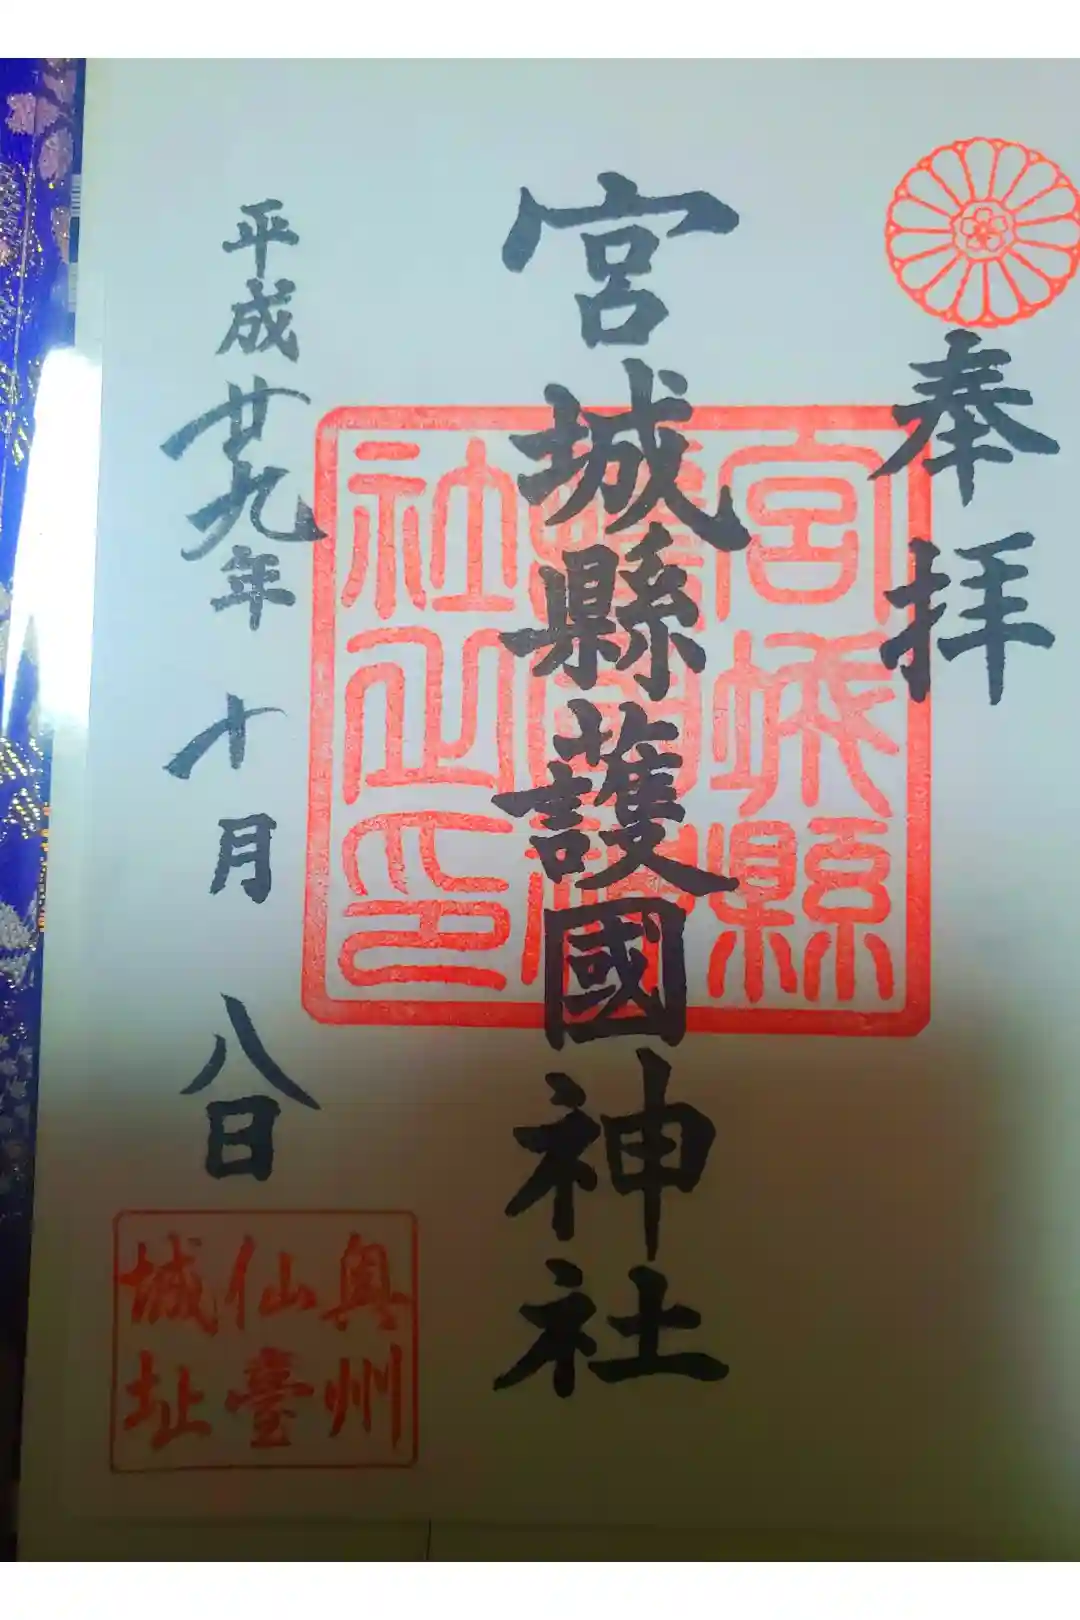 奉拝
宮城縣護國神社
宮城縣
護國神
社之印
平成廿九年十月八日
奥州
仙臺
城址